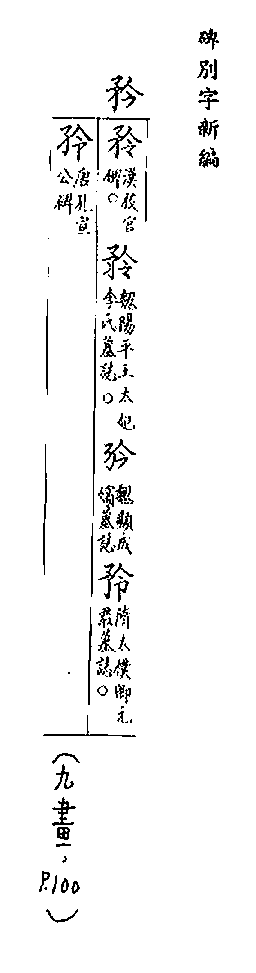 碑別字新編
矜
矜漢校官碑○矜魏陽平王太妃李氏墓誌○矜魏顯成嬪墓誌矜隋太僕卿元君墓誌○
矜唐孔宣公碑
(九畫, P.100)